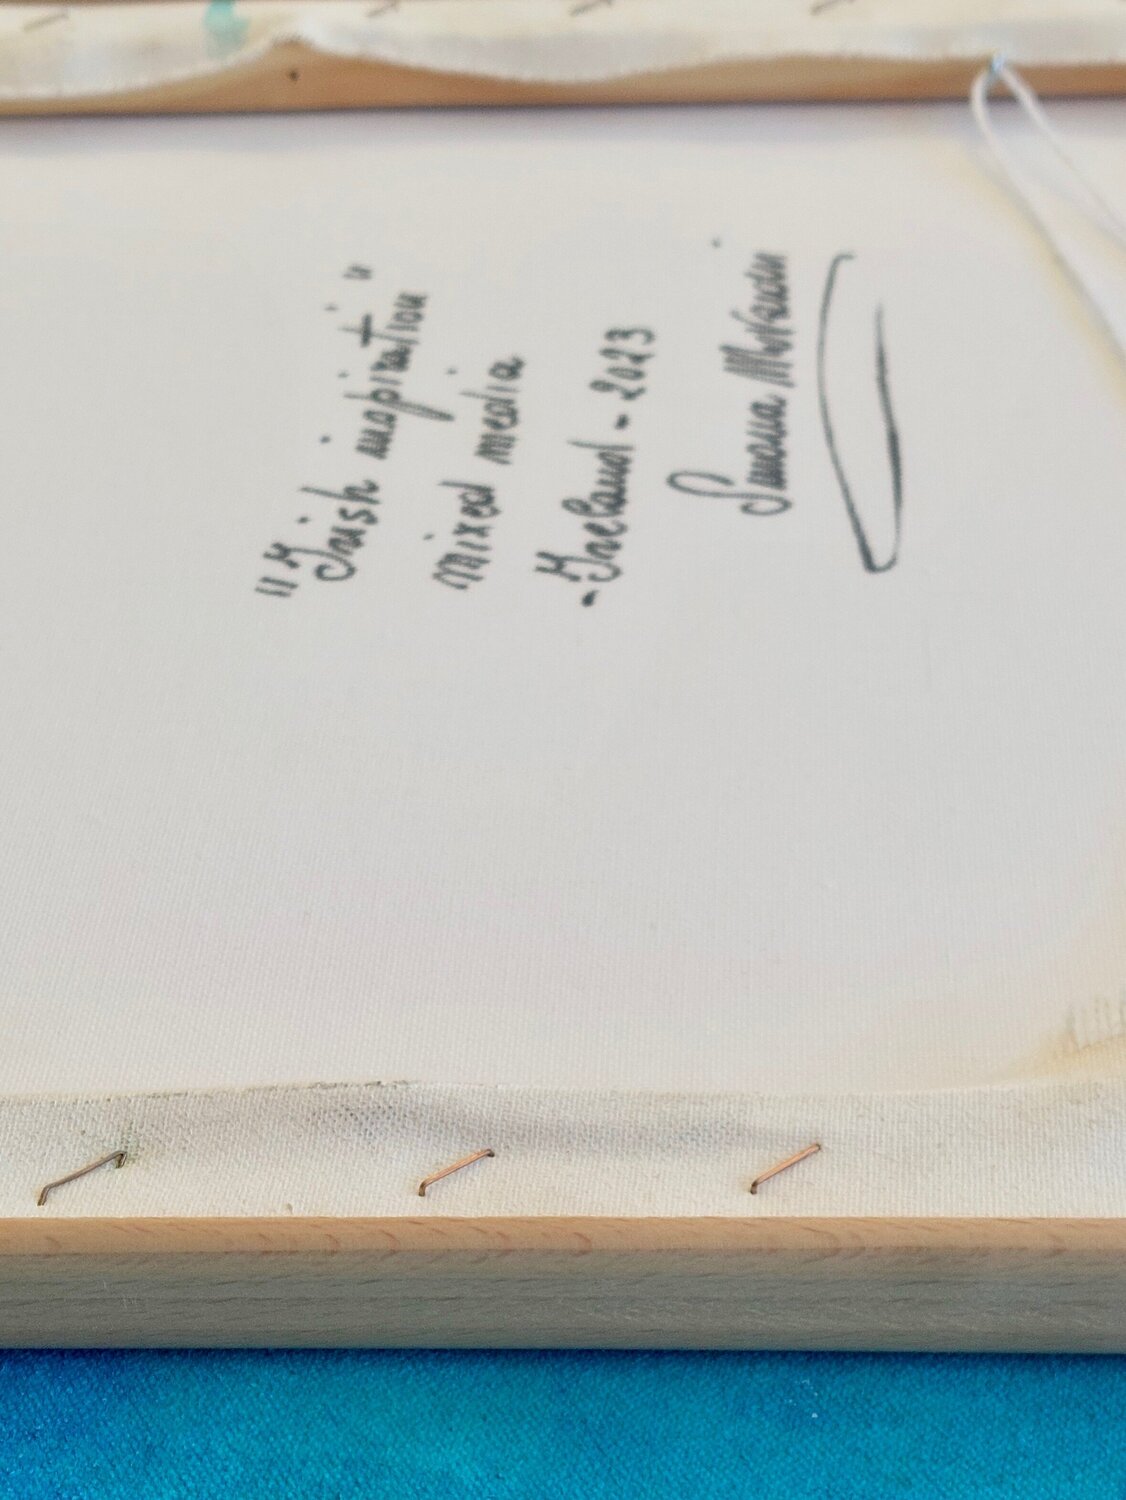 "Irish inspiration"
mixed media
-Ireland - 2023
Simona